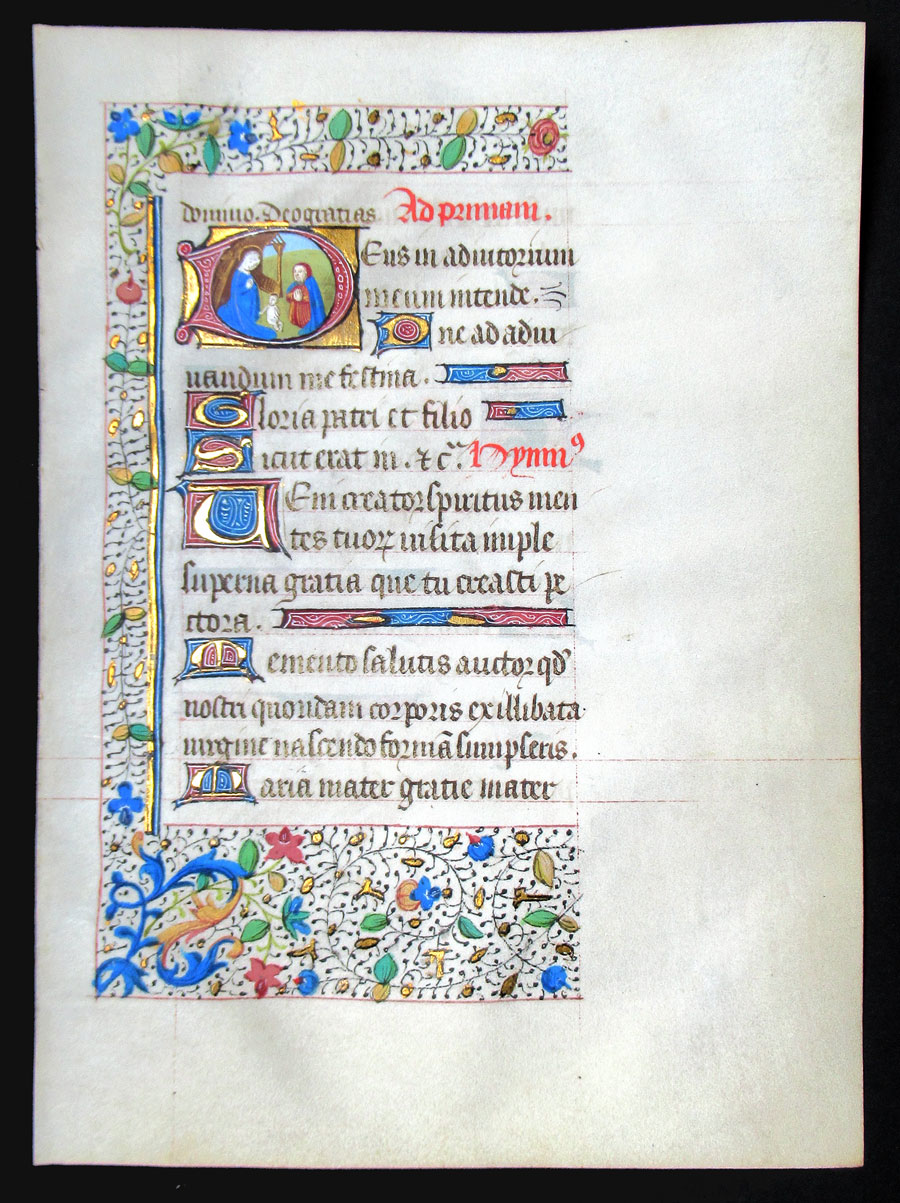 domino. Deo gratias Ad primam.
Deus in adiutorium
meum intende.
Domine ad adiu
uandum me festina.
Gloria patri et filio
Sicut erat in. &c̄. Hymnꝰ
Ueni creator spiritus men
tes tuoꝝ uisita imple
superna gratia que tu creasti pe
ctora.
Memento salutis auctor qd̓
nostri quondam corporis ex illibata
uirgine nascendo formā sumpseris.
Maria mater gratie mater